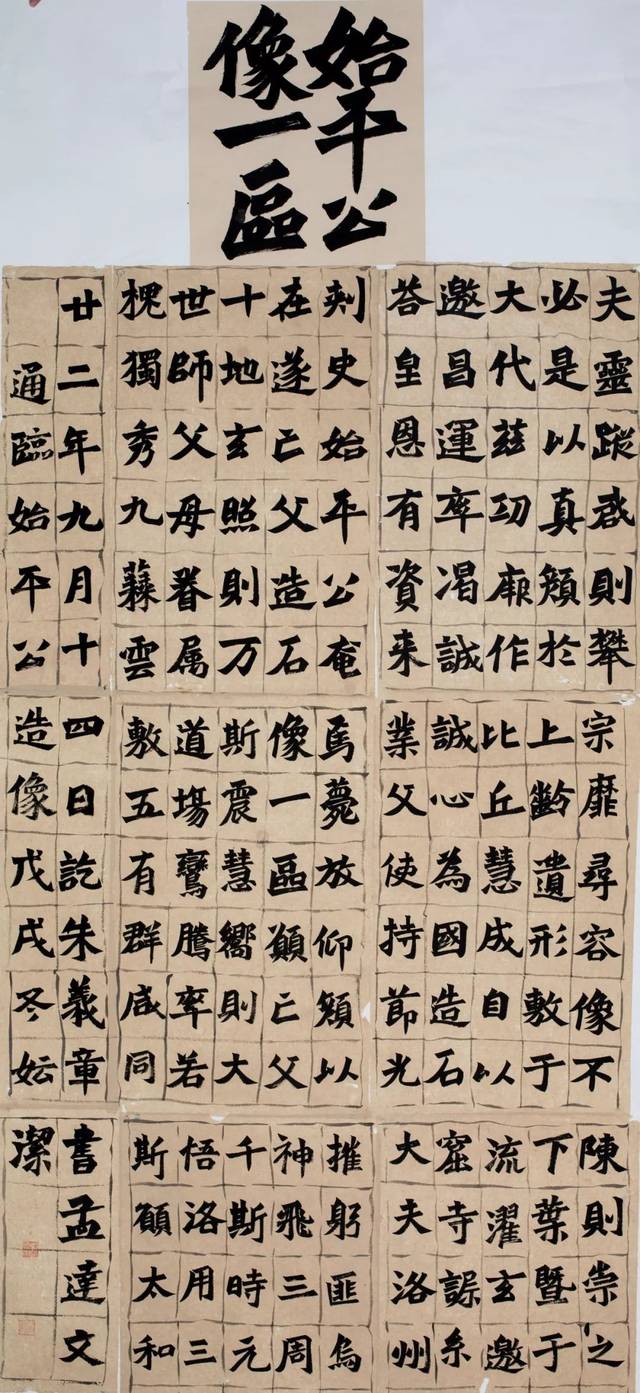 始平公
像一區
夫靈蹤啟則攀宗靡尋容像不陳則崇之
必是以真頵於上齡遺形敷于下葉暨于
大代茲功厥作比丘慧成自以流濯玄邀
邀昌運率渴誠誠心為國造石窟寺糸
荅皇恩有資来業父使持節光大夫洛州
刾史始平公奄焉薨放仰頵以摧躬匪烏
在遂亡父造石像一區顓亡父神飛三周
十地玄照則万斯震慧嚮則大千斯時元
世師父母眷属道塲鸞騰率若悟洛用三
槐獨秀九蕀雲敷五有群咸同斯願太和
廿二年九月十四日訖朱義章書孟達文
通臨始平公造像戊戌冬妘潔